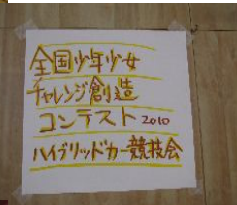 全国少年少女
チャレンジ創造
コンテスト 2010
ハイブリッドカー競技会